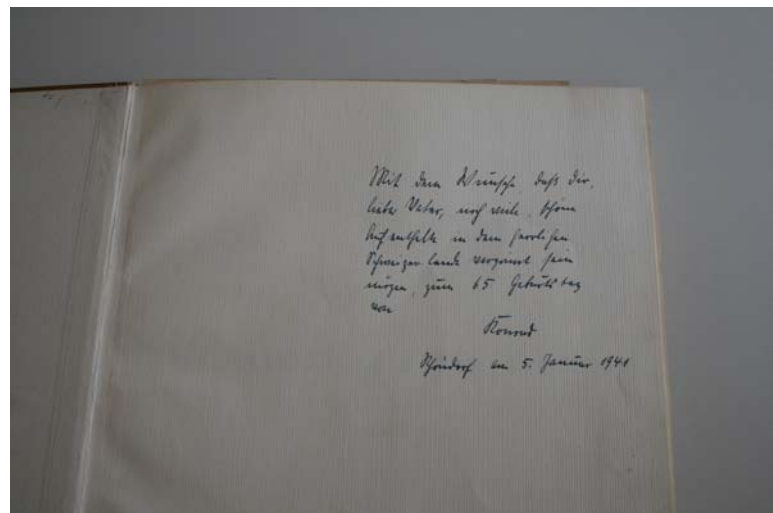 Mit dem Wunsche, daß dir,
lieber Vater, noch viele, schöne
Aufenthalte in dem herrlichen
Schweizer Lande vergönnt sein
mögen, zum 65 Geburtstag
von
Konrad
am 5. Januar 1941